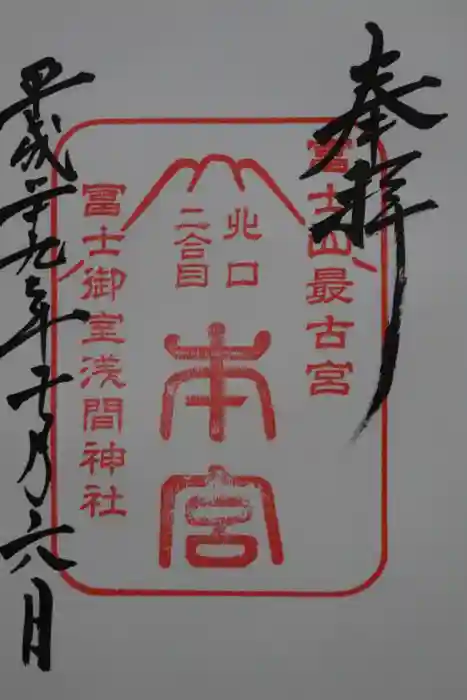 奉拝
冨士山最古宮
北口
二合目
本宮
冨士御室浅間神社
平成二十九年十一月六日